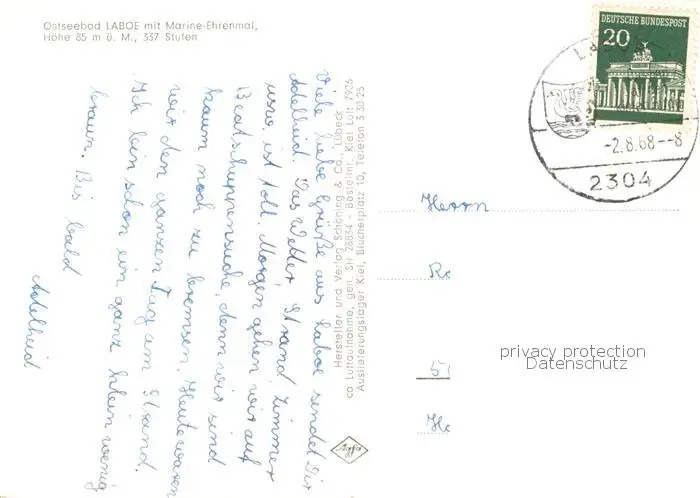 Ostseebad LABOE mit Marine-Ehrenmal,
Höhe 85 m ü. M., 337 Stufen
Viele liebe Grüße aus Laboe sendet Dir
Adelheid. Das Wetter, Strand, Zimmer
usw. ist toll. Morgen gehen wir auf
Beatschuppensuche, denn wir sind
kaum noch zu bremsen. Heute waren
wir den ganzen Tag am Strand.
Ich bin schon ein ganz klein wenig
braun. Bis bald
Adelheid
Hersteller und Verlag Schöning & Co., Lübeck
ca Luftaufnahme, gen. SH 28834 - Bestellnr. Kiel Luft 7926
Auslieferungslager Kiel, Blücherplatz 10, Telefon 3 30 25
Agfa
DEUTSCHE BUNDESPOST
20
-2.8.68--8
2304
Herrn
Ro
51
He
privacy protection
Datenschutz